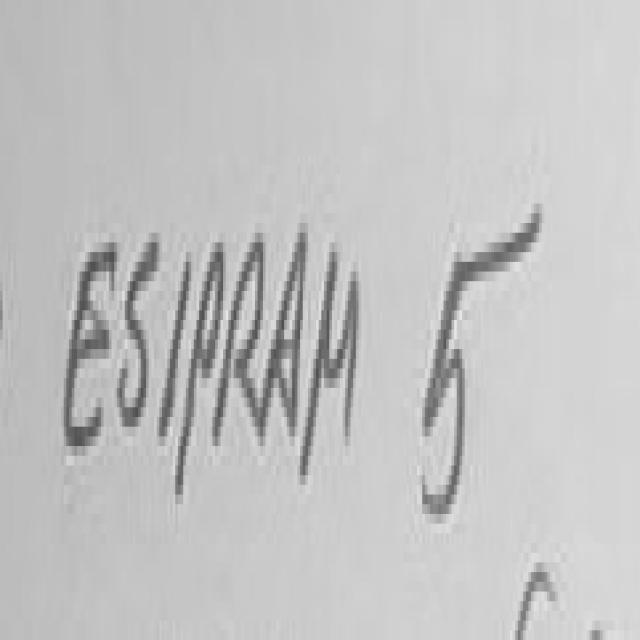 ESIMRAM 5